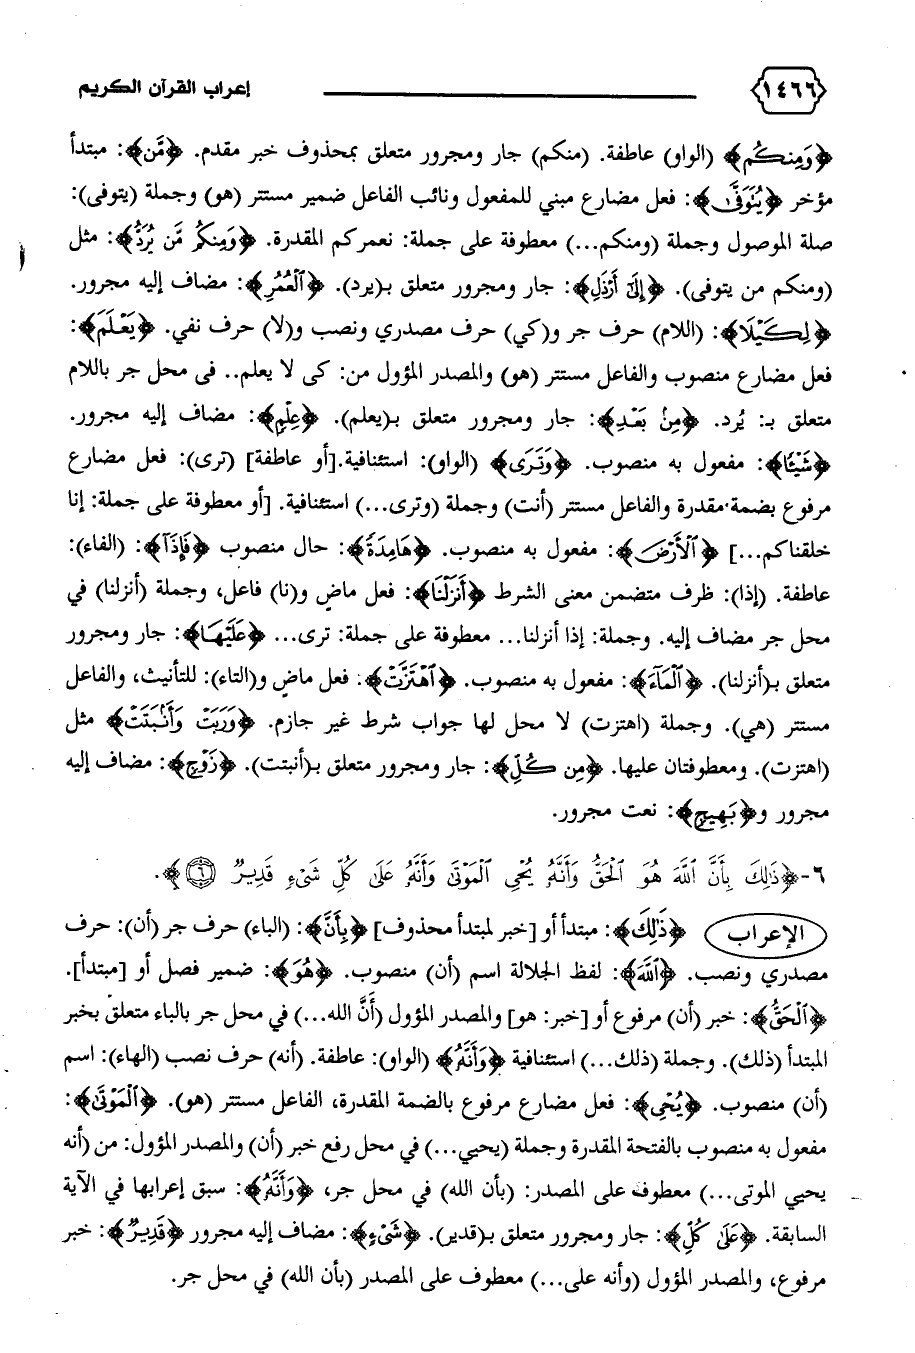 ١٤٦٦ إعراب القرآن الكريم
﴿وَمِنكُم﴾ (الواو) عاطفة. (منكم) جار ومجرور متعلق بمحذوف خبر مقدم. ﴿مَّن﴾: مبتدأ
مؤخر ﴿يُتَوَفَّىٰ﴾: فعل مضارع مبني للمفعول ونائب الفاعل ضمير مستتر (هو) وجملة (يتوفى):
صلة الموصول وجملة (ومنكم...) معطوفة على جملة: نعمركم المقدرة. ﴿وَمِنكُم مَّن يُرَدُّ﴾: مثل
(ومنكم من يتوفى). ﴿إِلَىٰٓ أَرْذَلِ﴾: جار ومجرور متعلق بـ(يرد). ﴿ٱلْعُمُرِ﴾: مضاف إليه مجرور.
﴿لِكَيْلَا﴾: (اللام) حرف جر و(كي) حرف مصدري ونصب و(لا) حرف نفي. ﴿يَعْلَمَ﴾:
فعل مضارع منصوب والفاعل مستتر (هو) والمصدر المؤول من: كى لا يعلم.. فى محل جر باللام
متعلق بـ: يُرد. ﴿مِنۢ بَعْدِ﴾: جار ومجرور متعلق بـ(يعلم). ﴿عِلْمٍ﴾: مضاف إليه مجرور.
﴿شَيْـًٔا﴾: مفعول به منصوب. ﴿وَتَرَى﴾ (الواو): استئنافية.[أو عاطفة] (ترى): فعل مضارع
مرفوع بضمة مقدرة والفاعل مستتر (أنت) وجملة (وترى...) استئنافية. [أو معطوفة على جملة: إنا
خلقناكم...] ﴿ٱلْأَرْضَ﴾: مفعول به منصوب. ﴿هَامِدَةً﴾: حال منصوب ﴿فَإِذَآ﴾: (الفاء):
عاطفة. (إذا): ظرف متضمن معنى الشرط ﴿أَنزَلْنَا﴾: فعل ماضٍ و(نا) فاعل، وجملة (أنزلنا) في
محل جر مضاف إليه. وجملة: إذا أنزلنا... معطوفة على جملة: ترى... ﴿عَلَيْهَا﴾: جار ومجرور
متعلق بـ(أنزلنا). ﴿ٱلْمَآءَ﴾: مفعول به منصوب. ﴿ٱهْتَزَّتْ﴾: فعل ماضٍ و(التاء): للتأنيث، والفاعل
مستتر (هي). وجملة (اهتزت) لا محل لها جواب شرط غير جازم. ﴿وَرَبَتْ وَأَنۢبَتَتْ﴾ مثل
(اهتزت). ومعطوفتان عليها. ﴿مِن كُلِّ﴾: جار ومجرور متعلق بـ(أنبتت). ﴿زَوْجٍ﴾: مضاف إليه
مجرور و﴿بَهِيجٍ﴾: نعت مجرور.
٦-﴿ذَٰلِكَ بِأَنَّ ٱللَّهَ هُوَ ٱلْحَقُّ وَأَنَّهُۥ يُحْىِ ٱلْمَوْتَىٰ وَأَنَّهُۥ عَلَىٰ كُلِّ شَىْءٍ قَدِيرٌ ٦﴾.
الإعراب ﴿ذَٰلِكَ﴾: مبتدأ أو [خبر لمبتدأ محذوف] ﴿بِأَنَّ﴾: (الباء) حرف جر (أن): حرف
مصدري ونصب. ﴿ٱللَّهَ﴾: لفظ الجلالة اسم (أن) منصوب. ﴿هُوَ﴾: ضمير فصل أو [مبتدأ].
﴿ٱلْحَقُّ﴾: خبر (أن) مرفوع أو [خبر: هو] والمصدر المؤول (أنَّ الله...) في محل جر بالباء متعلق بخبر
المبتدأ (ذلك). وجملة (ذلك...) استئنافية ﴿وَأَنَّهُۥ﴾ (الواو): عاطفة. (أنه) حرف نصب (الهاء): اسم
(أن) منصوب. ﴿يُحْىِ﴾: فعل مضارع مرفوع بالضمة المقدرة، الفاعل مستتر (هو). ﴿ٱلْمَوْتَىٰ﴾:
مفعول به منصوب بالفتحة المقدرة وجملة (يحيي...) في محل رفع خبر (أن) والمصدر المؤول: من (أنه
يحيي الموتى...) معطوف على المصدر: (بأن الله) في محل جر، ﴿وَأَنَّهُۥ﴾: سبق إعرابها في الآية
السابقة. ﴿عَلَىٰ كُلِّ﴾: جار ومجرور متعلق بـ(قدير). ﴿شَىْءٍ﴾: مضاف إليه مجرور ﴿قَدِيرٌ﴾: خبر
مرفوع، والمصدر المؤول (وأنه على...) معطوف على المصدر (بأن الله) في محل جر.